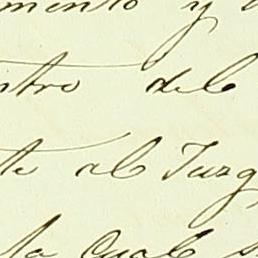 mento y
ntro del
te al Juzg
la Cual s